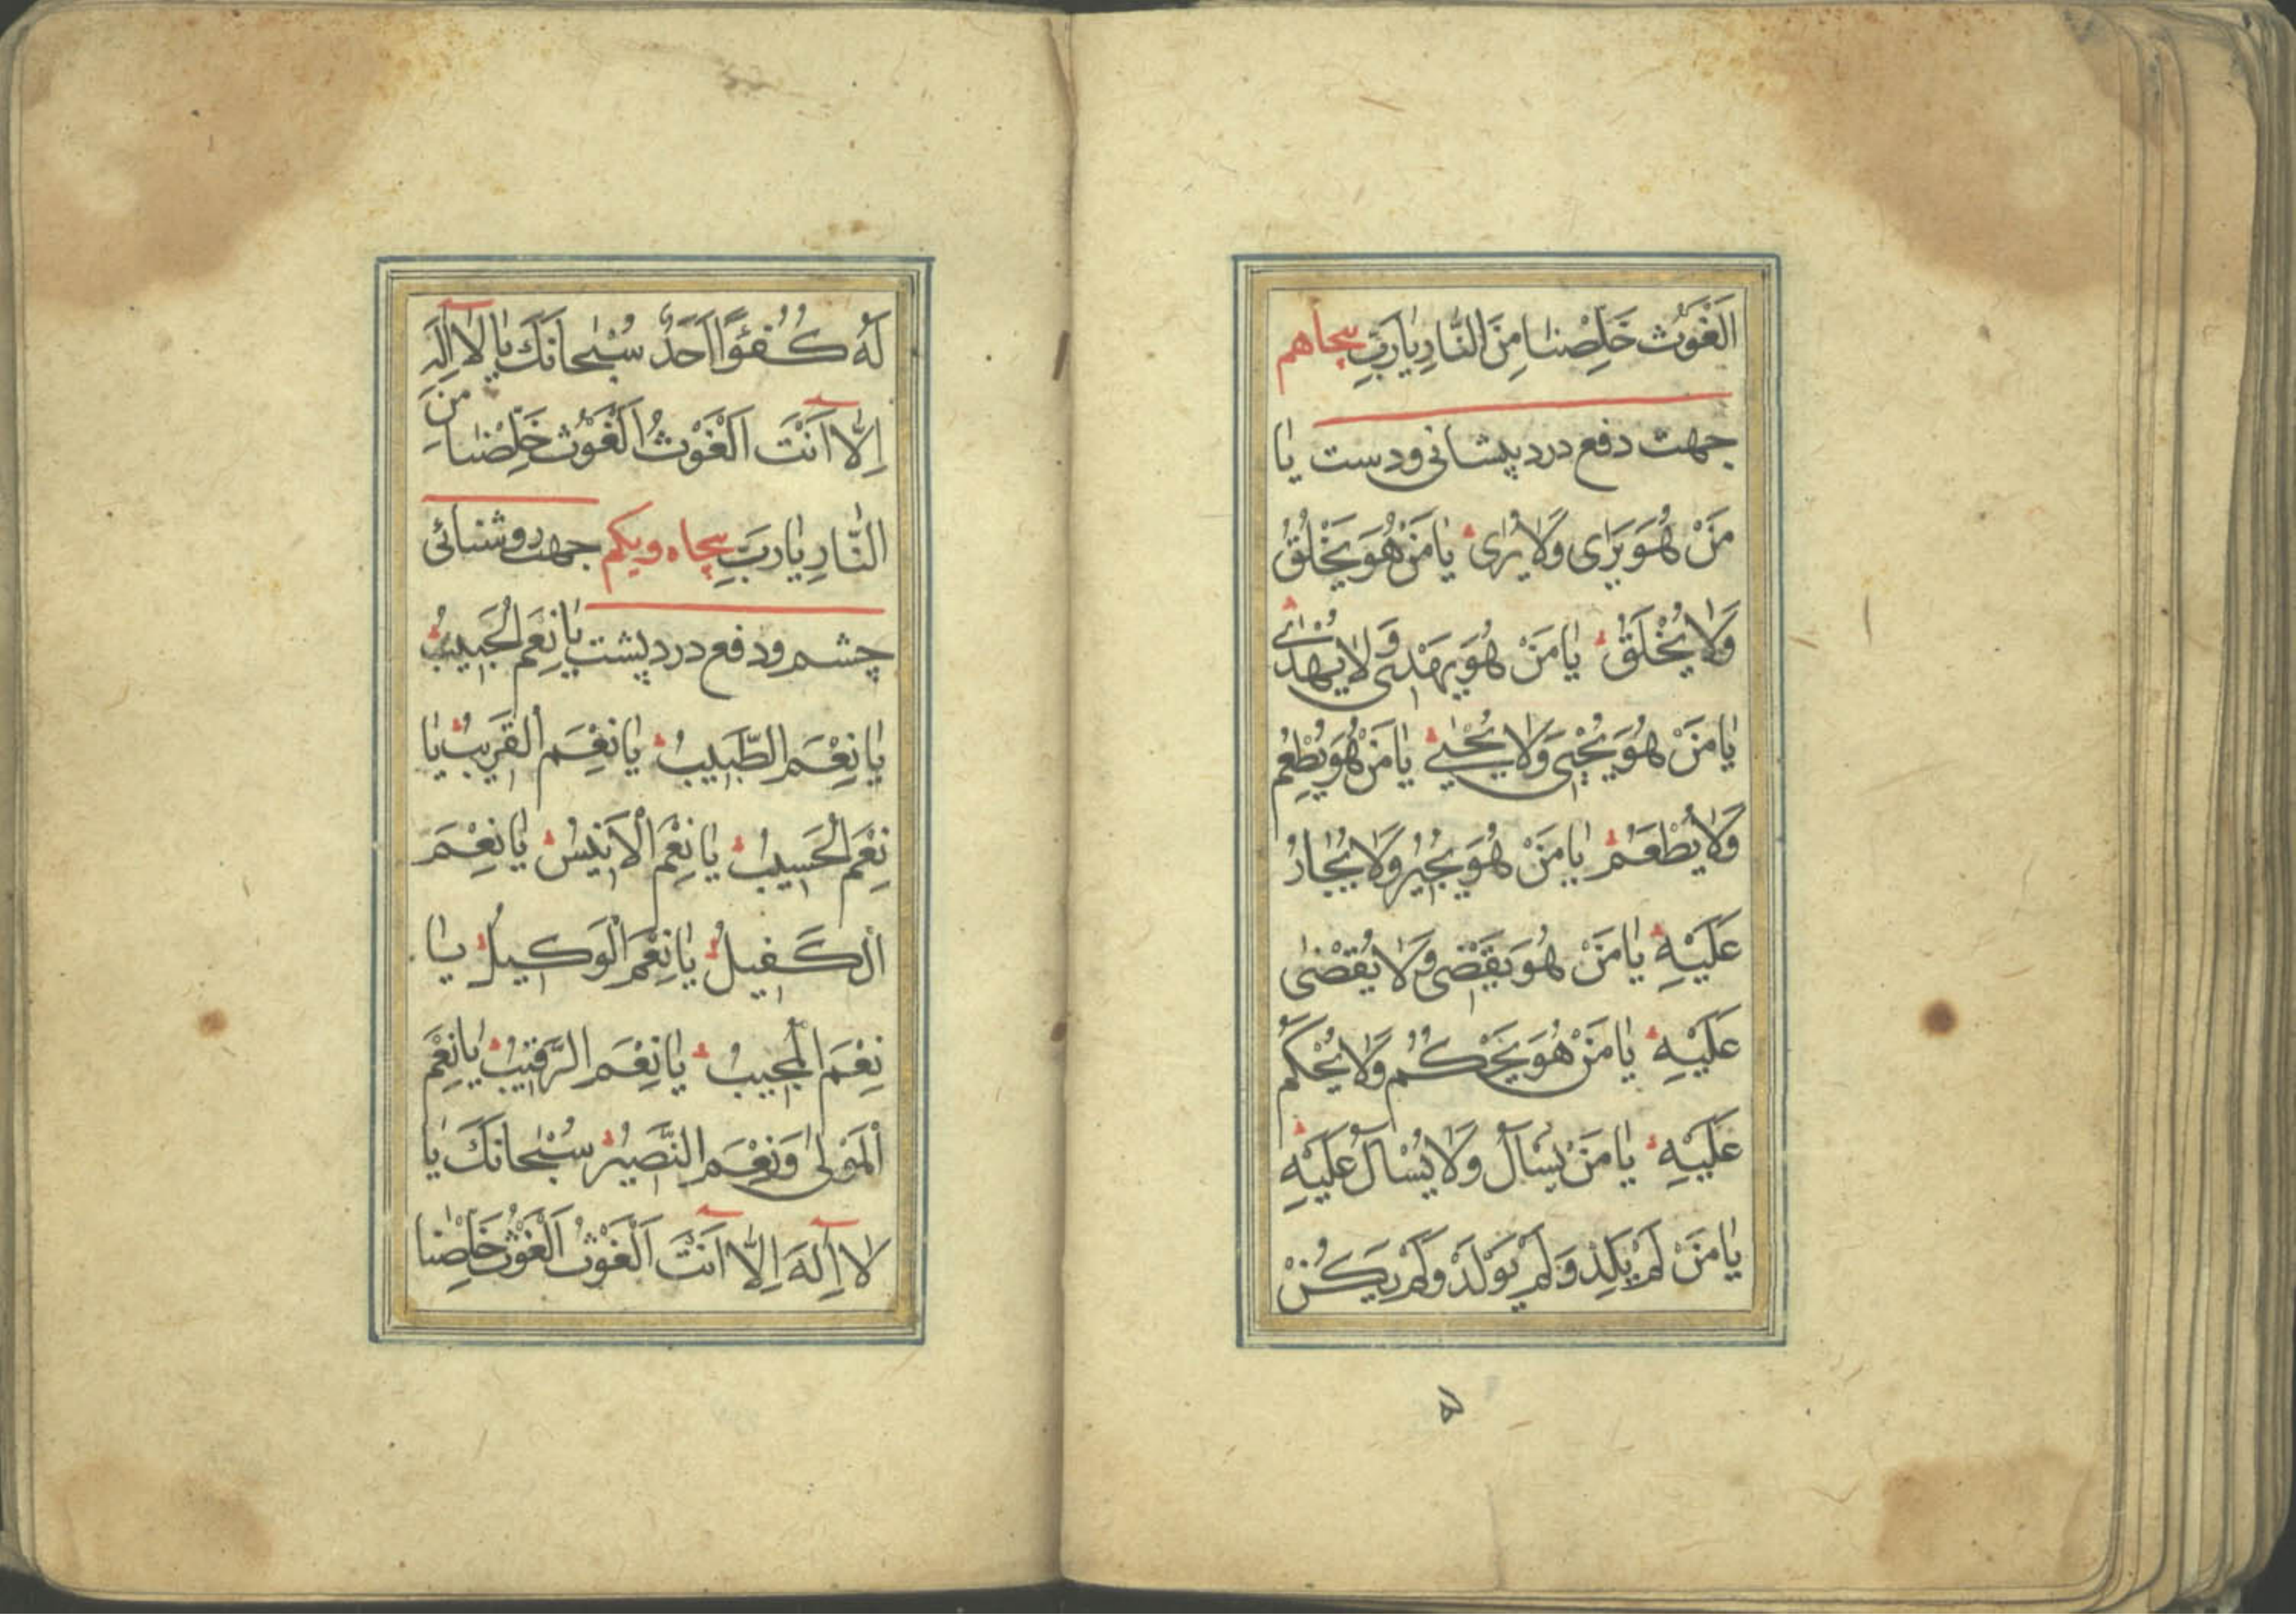 اَلْغَوْث خَلِّصْنٰا مِنَ النّٰارِ يٰارَبِّ پنجاهم
جهت دفع درد پیشانی و دست یا
مَنْ هُوَ يَرَای وَلاٰ يُرٰی يٰا مَنْ هُوَ يَخْلُقُ
وَلاٰ يُخْلَقُ يٰا مَنْ هُوَ يَهْدِی وَلاٰ يُهْدٰی
يٰا مَنْ هُوَ يُحْيِی وَلاٰ يُحْيٰی يٰا مَنْ هُوَ يُطْعِمُ
وَلاٰ يُطْعَمُ يٰا مَنْ هُوَ يُجيٖرُ وَلاٰ يُجٰارُ
عَلَيْهِ يٰا مَنْ هُوَ يَقْضِی وَلاٰ يُقْضٰی
عَلَيْهِ يٰا مَنْ هُوَ يَحْكُمُ وَلاٰ يُحْكَمُ
عَلَيْهِ يٰا مَنْ يَسْاَلُ وَلاٰ يُسْاَلُ عَلَيْهِ
يٰا مَنْ لَمْ يَلِدْ وَلَمْ يُولَدْ وَلَمْ يَكُنْ
۵
لَهُ كُفُؤًا اَحَدٌ سُبْحٰانَكَ يٰا لاٰ اِلٰهَ
اِلّاٰ اَنْتَ اَلْغَوْثُ اَلْغَوْث خَلِّصْنٰا مِنَ
النّٰارِ يٰارَبِّ پنجاه و یکم جهت روشنائی
چشم و دفع درد پشت يٰا نِعْمَ الْحَبيٖبُ
يٰا نِعْمَ الطَّبيٖبُ يٰا نِعْمَ الْقَريٖبُ يٰا
نِعْمَ الْحَسيٖبُ يٰا نِعْمَ الْاَنيٖسُ يٰا نِعْمَ
الْكَفيٖلُ يٰا نِعْمَ الْوَكيٖلُ يٰا
نِعْمَ الْمُجيٖبُ يٰا نِعْمَ الرَّقيٖبُ يٰا نِعْمَ
الْمَوْلٰی وَنِعْمَ النَّصيٖرُ سُبْحٰانَكَ يٰا
لاٰ اِلٰهَ اِلّاٰ اَنْتَ اَلْغَوْثُ اَلْغَوْث خَلِّصْنٰا